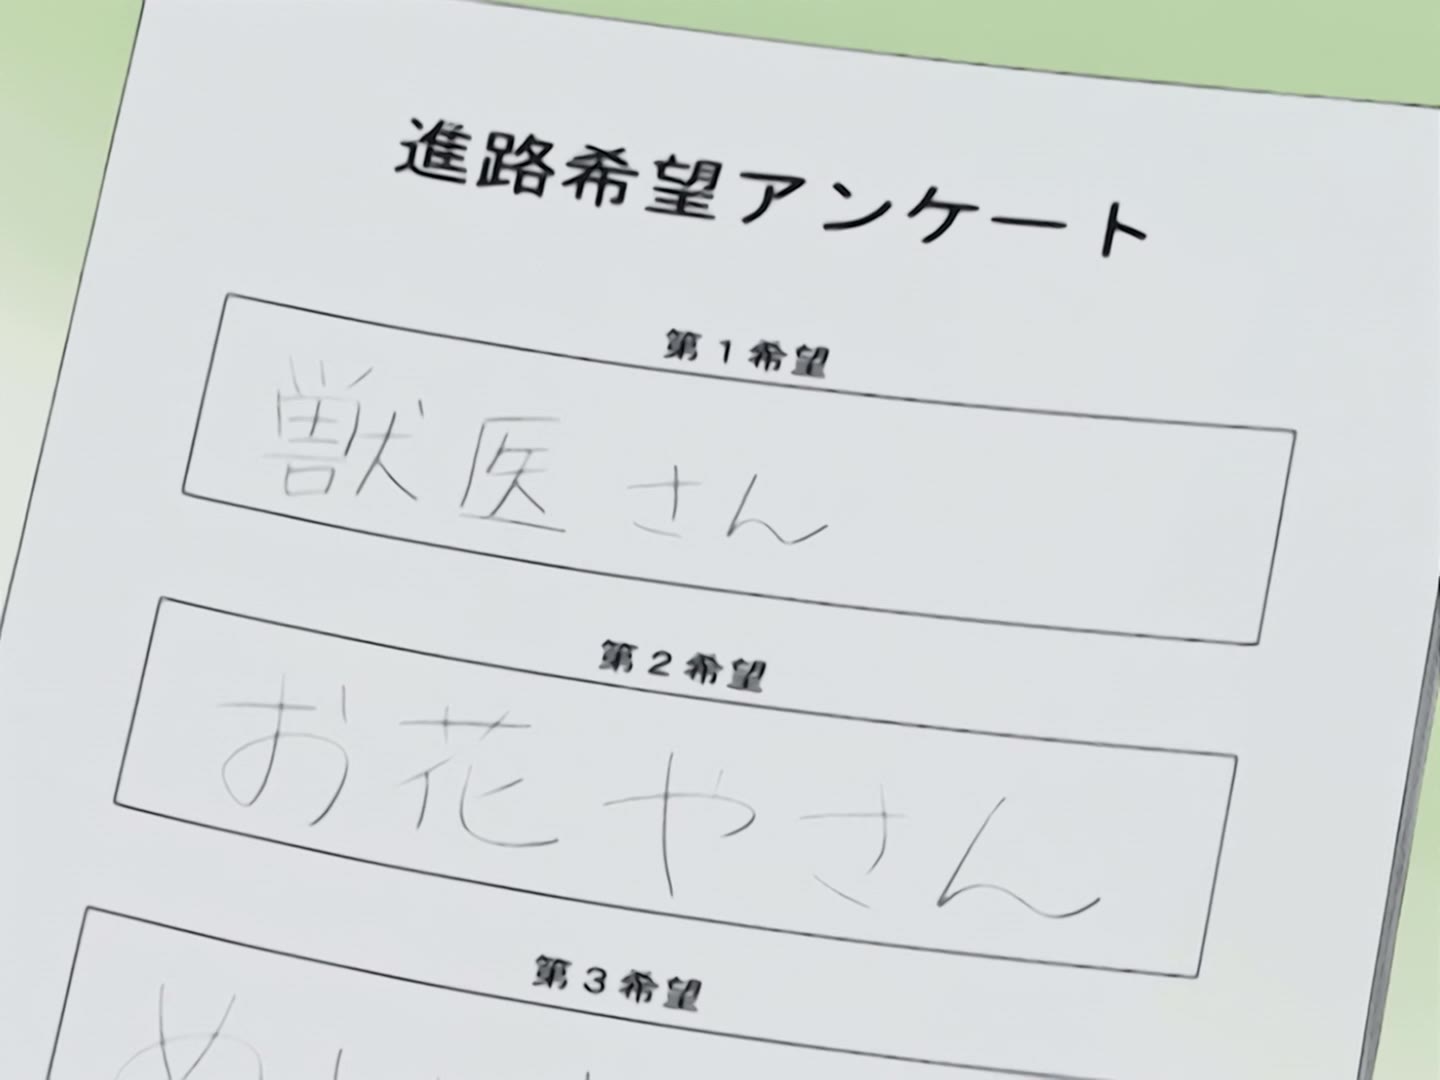 進路希望アンケート
第1希望
獣医さん
第2希望
お花やさん
第3希望
め